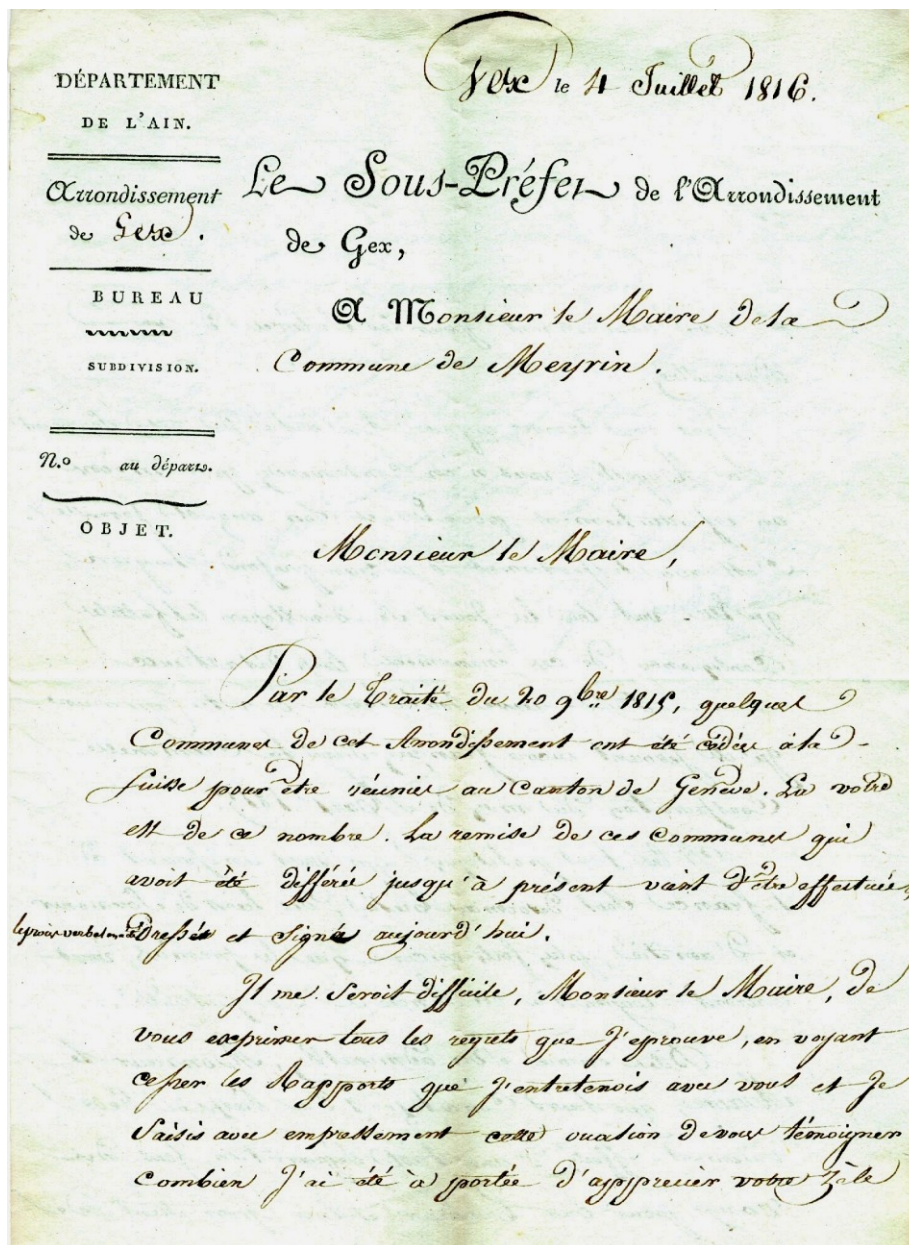 DÉPARTEMENT
DE L'AIN.
Arrondissement
de Gex.
BUREAU
SUBDIVISION.
N.o au départ.
OBJET.
Gex le 4 Juillet 1816.
Le Sous-Préfet de l'Arrondissement
de Gex,
A Monsieur le Maire de la
Commune de Meyrin.
Monsieur le Maire,
Par le Traité du 20 9bre 1815, quelques
Communes de cet Arrondissement ont été cédées à la
Suisse pour être réunies au Canton de Genève. La votre
est de ce nombre. La remise de ces Communes qui
avoit été différée jusqu'à présent vient d'être effectuée,
le procès verbal en a été Dressé et signé aujourd'hui.
Il me seroit difficile, Monsieur le Maire, de
vous exprimer tous les regrets que J'eprouve, en voyant
cesser les Rapports que J'entretenois avec vous et Je
Saisis avec empressement cette occasion de vous témoigner
Combien J'ai été à portée d'apprecier votre Zèle